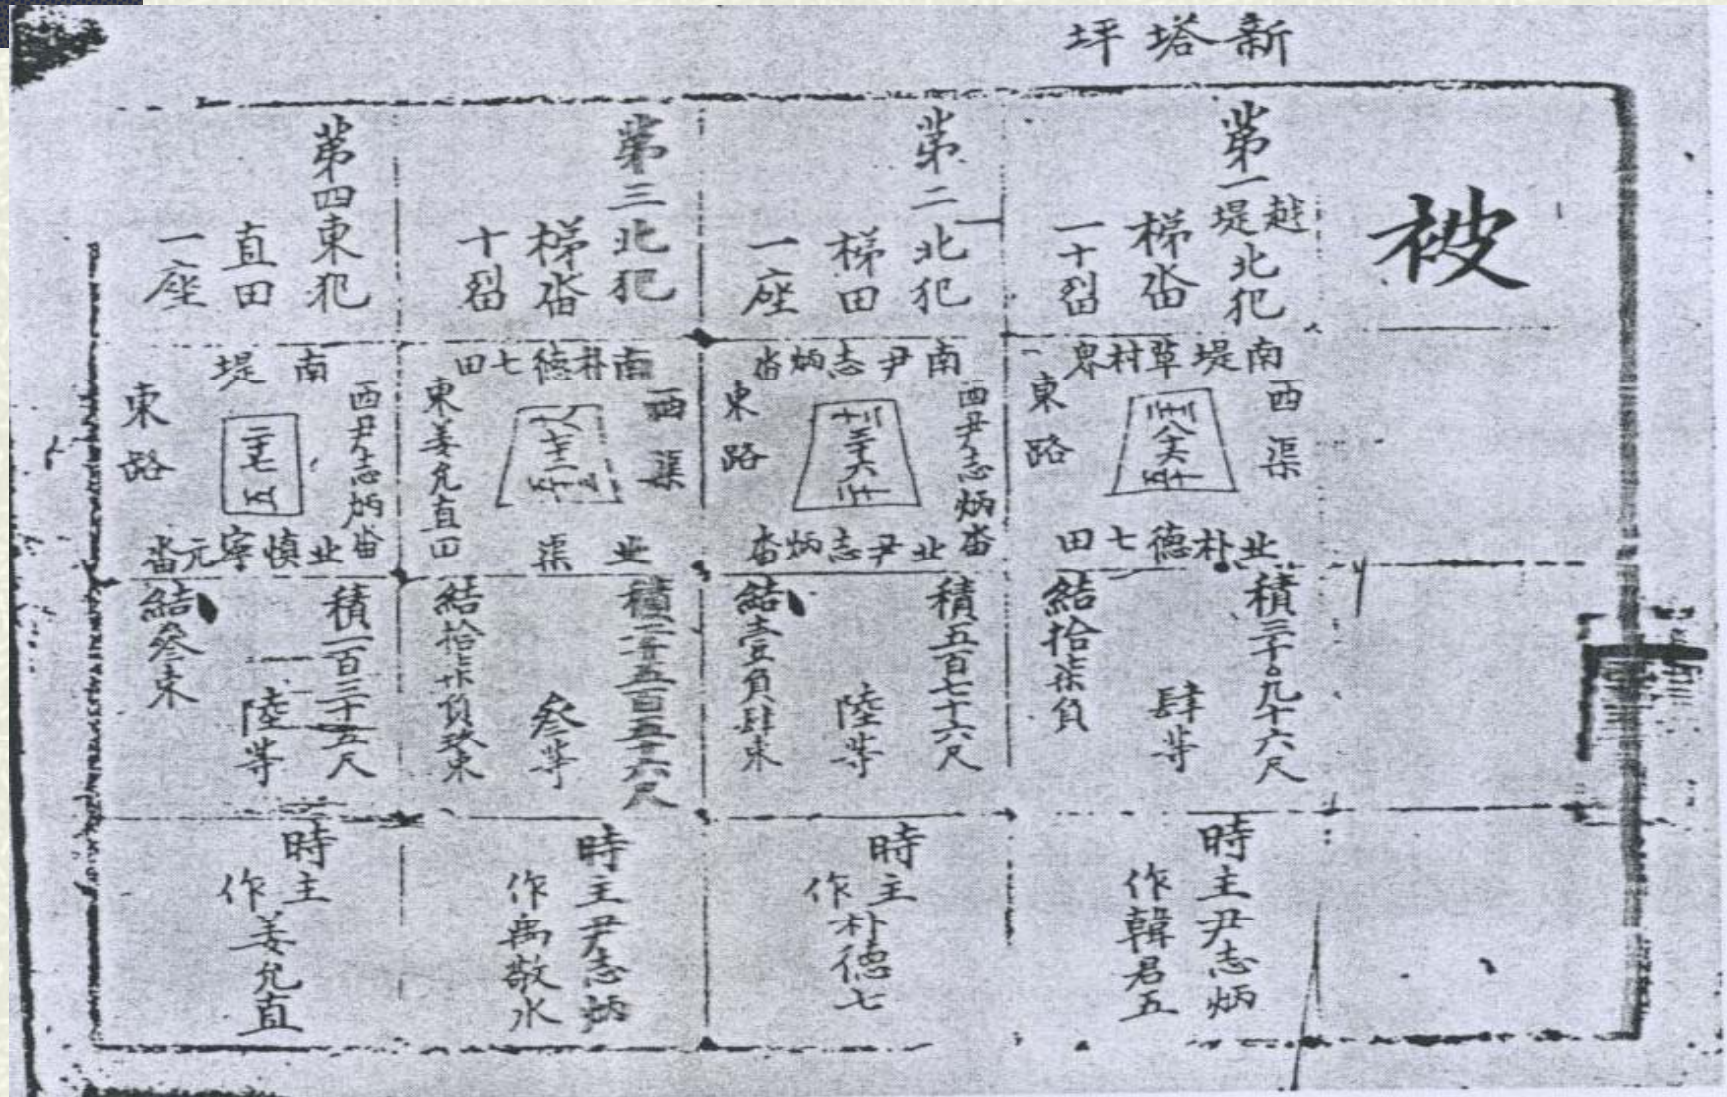 新塔坪
被
第一越堤北犯
梯畓
一十
南堤草村界
西渠
三十二
八十六
四十
東路
北朴德七田
積三千〇九十六尺
肆等
結拾柒負
時主尹志炳
作韓君五
第二北犯
梯田
一座
南尹志炳畓
西尹志炳畓
十二
三十六
二十
東路
北尹志炳畓
積五百七十六尺
陸等
結壹負肆束
時主
作
朴德七
第三北犯
梯畓
十
南朴德七田
西渠
十八
七十二
五十三
東姜允直田
北渠
積二千五百五十六尺
參等
結拾柒負玖束
時主尹志炳
作禹敬水
第四東犯
直田
一座
南堤
西尹志炳畓
二十七
五
東路
北愼寧元畓
積一百三十五尺
陸等
結參束
時主
作
姜允直